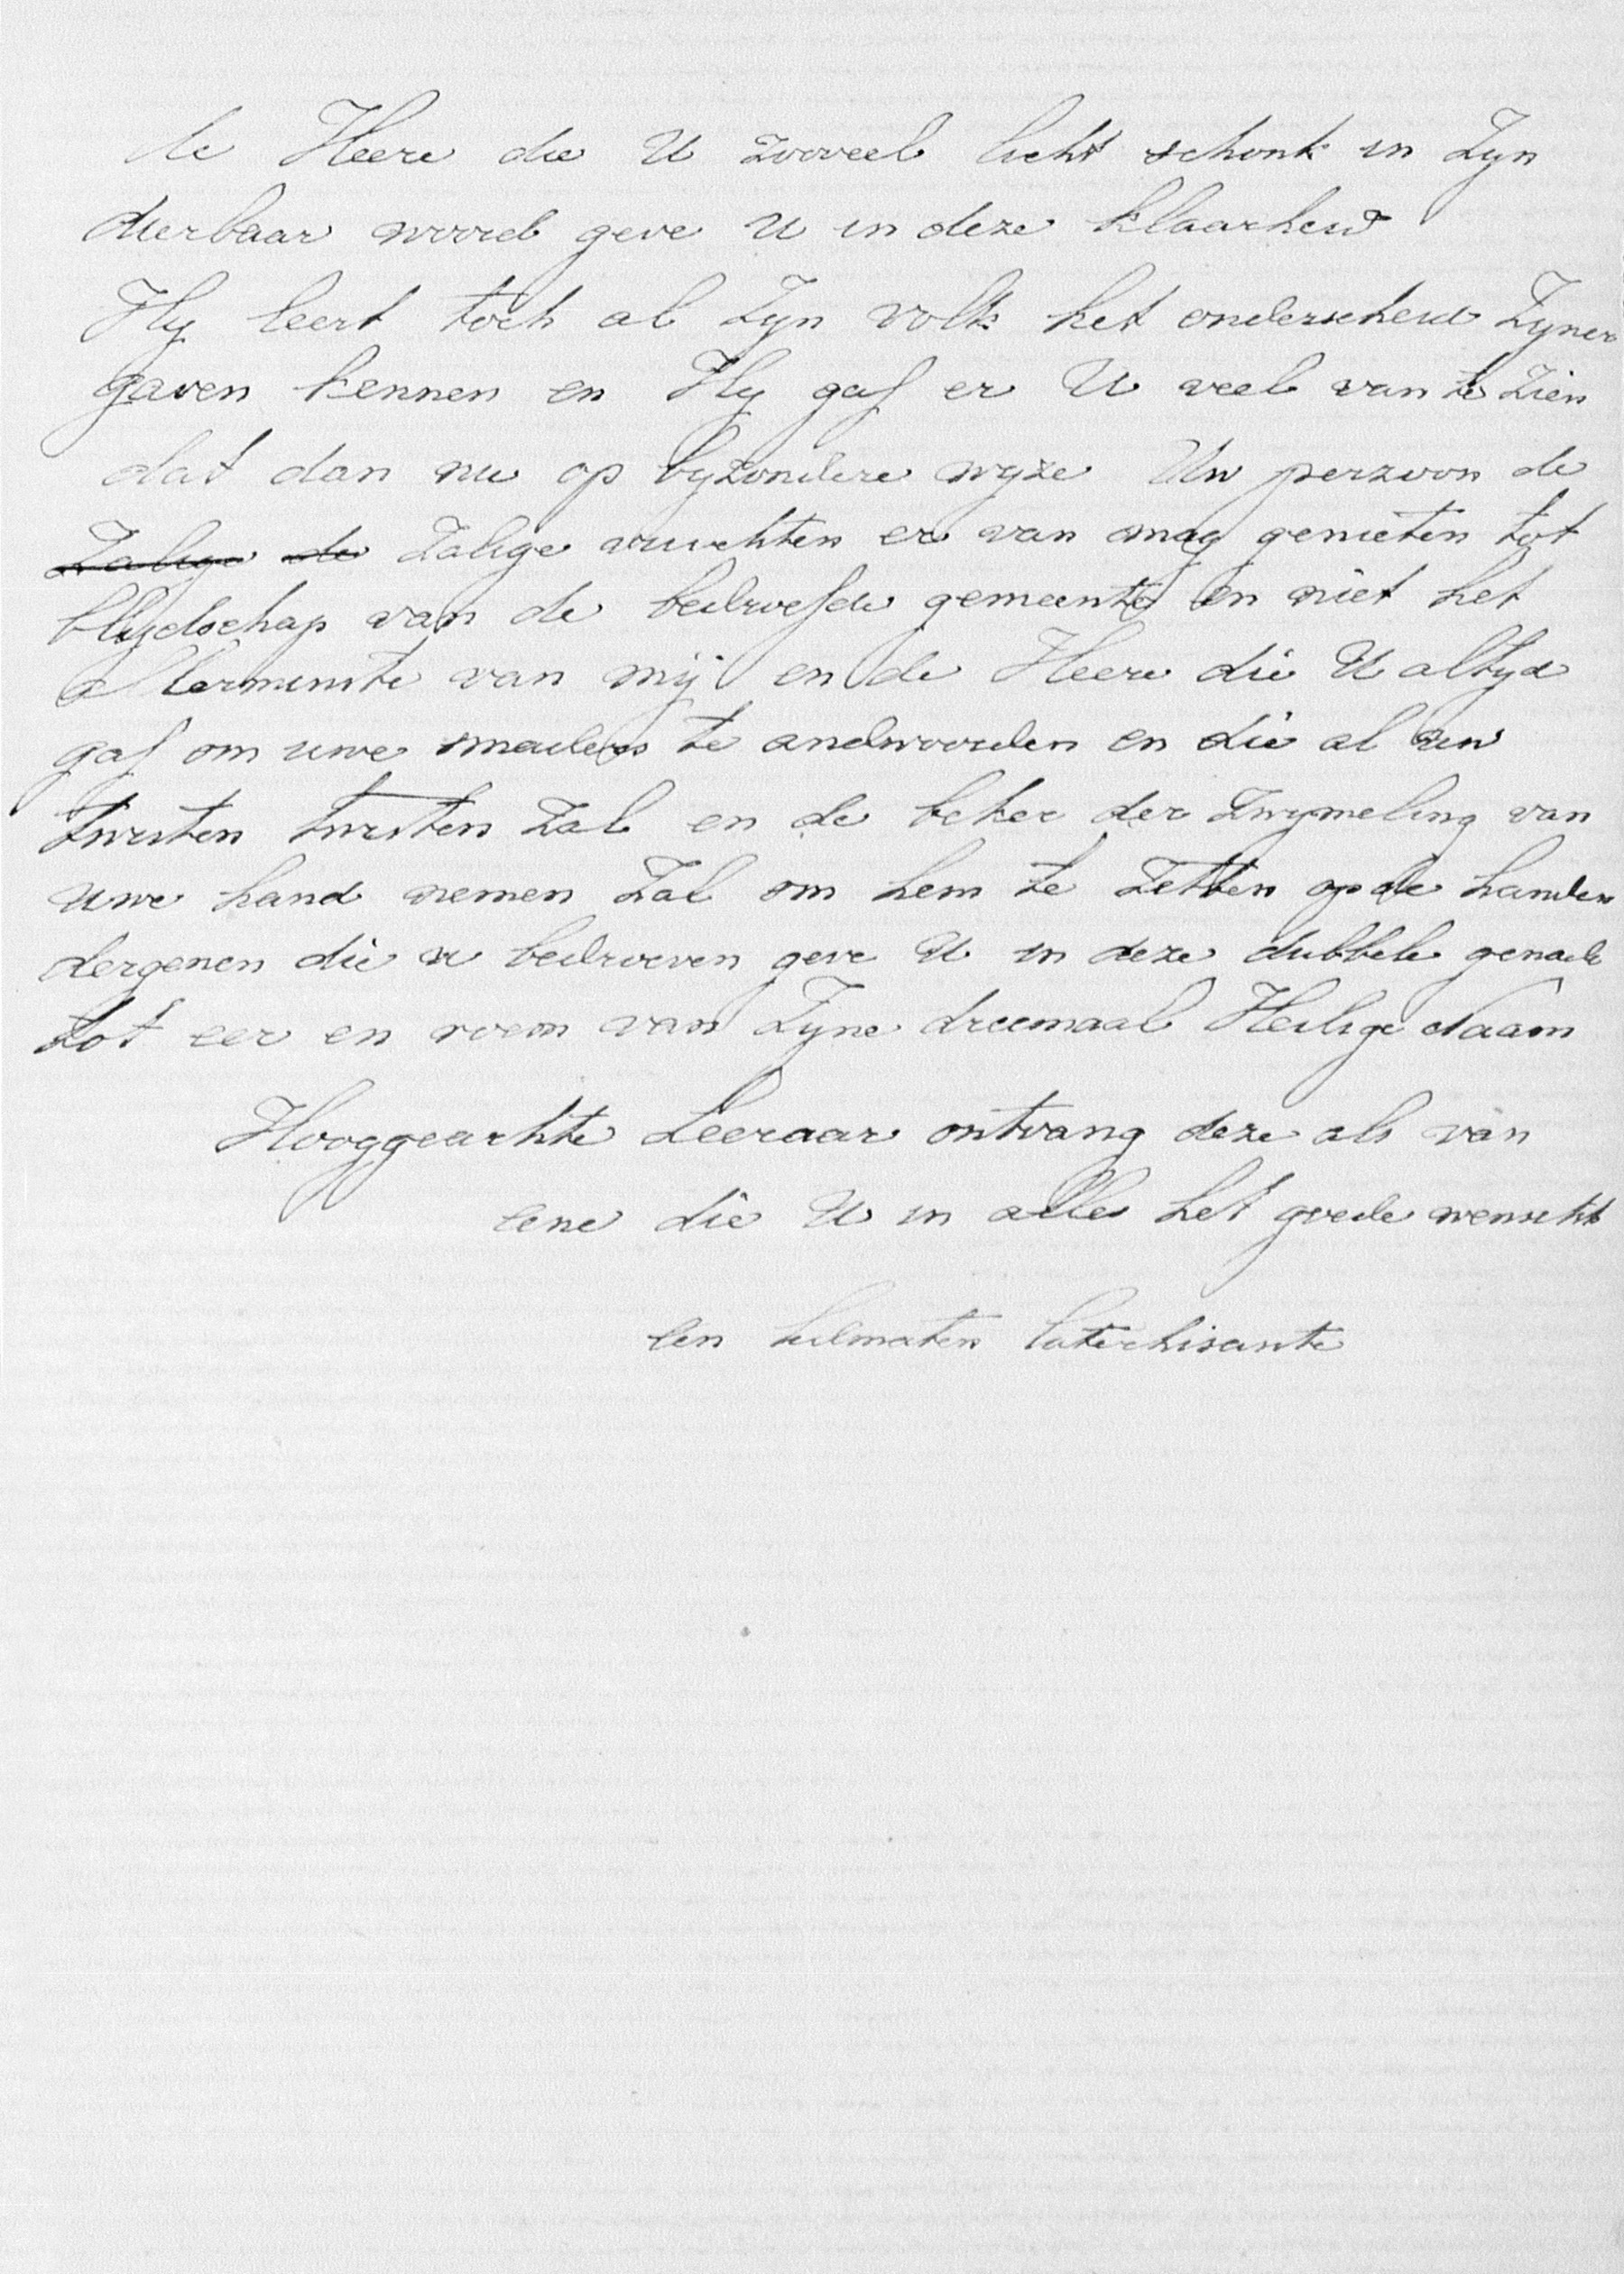 de Heere die U zooveel licht schonk in Zyn
dierbaar woord geve U in deze klaarheid
Hy leert toch al Zyn volk het onderscheid Zyner
gaven kennen en Hy gaf er U veel van te Zien
dat dan nu op byzondere wyze Uw perzoon de
Zalige de Zalige vruchten er van mag genieten tot
blydschap van de bedroefde gemeente en niet het
allerminste van mij en de Heere die U altyd
gaf om uwe smaders te andwoorden en die al uw
twisten twisten Zal en de beker der Zwymeling van
uwe hand nemen Zal om hem te Zetten op de handen
dergenen die u bedroeven geve U in deze dubbele genade
tot eer en roem van Zyne driemaal Heilige Naam
Hooggeachte Leeraar ontvang deze als van
eene die U in alles het goede wenscht
Een catechisante